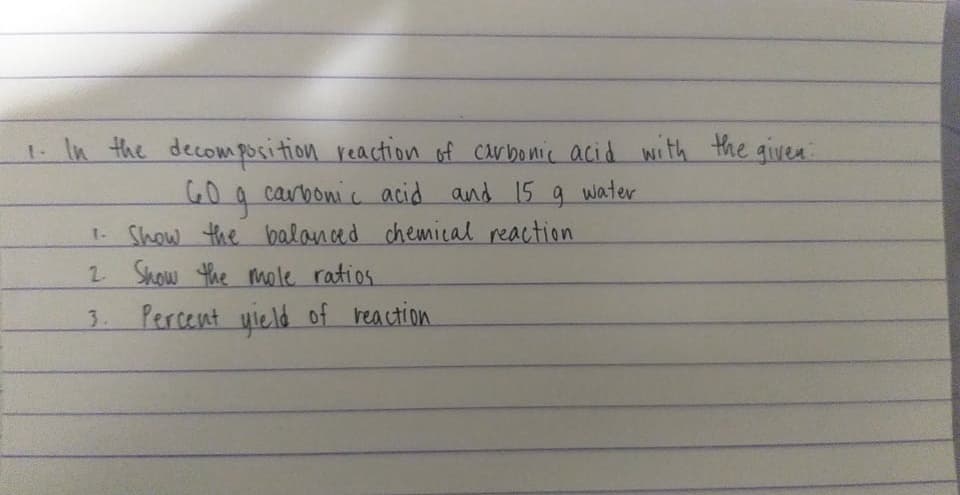 1. In the decomposition reaction of carbonic acid with the given:
60 g carbonic acid and 15 g water
1. Show the balanced chemical reaction
2. Show the mole ratios
3. Percent yield of reaction